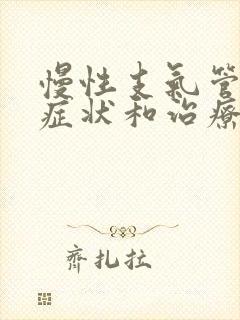 慢性支氣管
症状和治療
齊扎拉